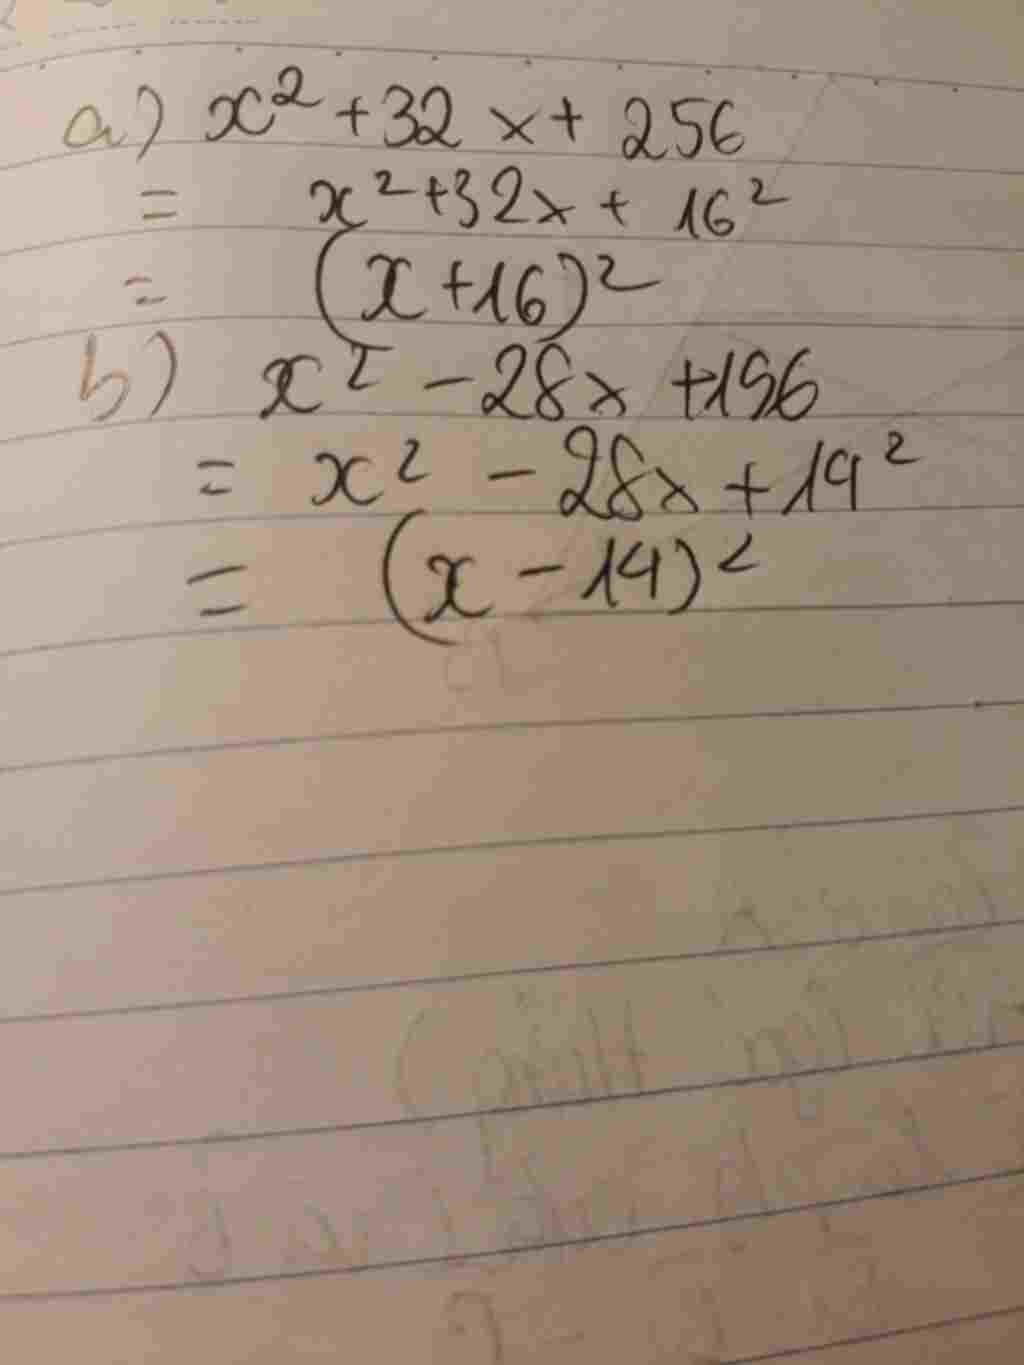 a) x² + 32x + 256
= x² + 32x + 16²
= (x + 16)²
b) x² - 28x + 196
= x² - 28x + 14²
= (x - 14)²